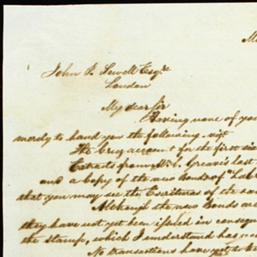 John S. Sewell Esqre
London
My dear Sir
Having none of you
merely to hand you the following, viz
The brig account for the first si
Extracts from Mr. S. Greaves last
and a Copy of the new Bonds of
that you may see the Escrituras of the sa
Although the new Bonds are
they have not yet been issued in conseq
the Stamp, which I understand has
No transactions have yet